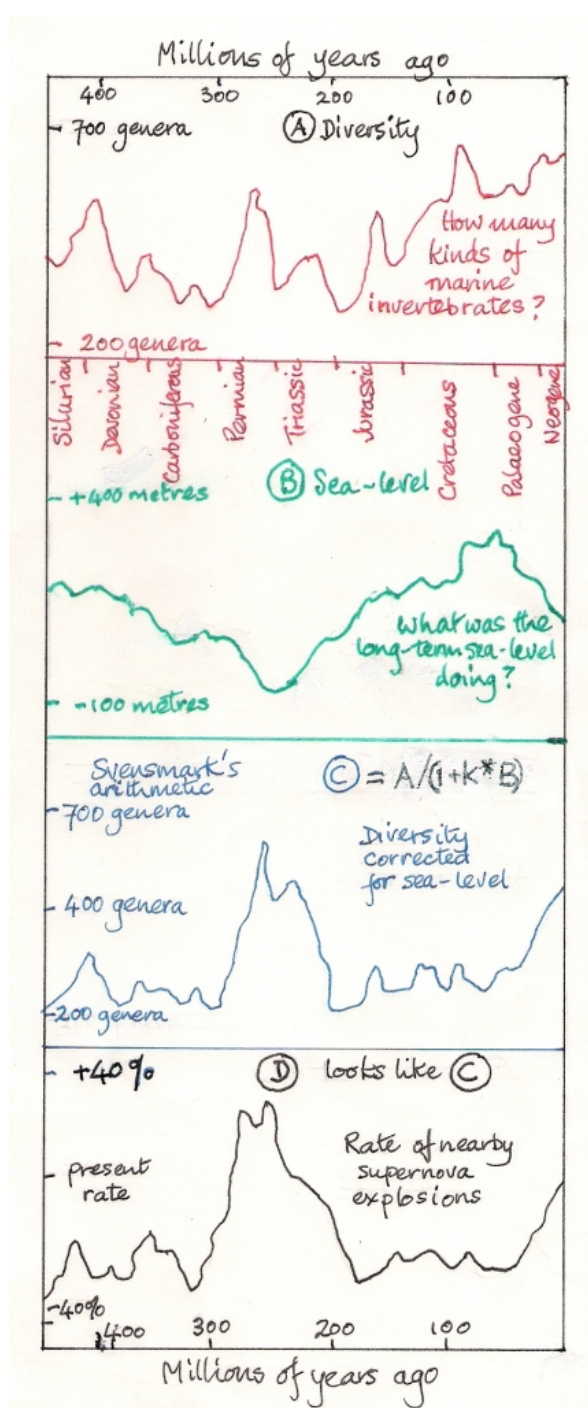 Millions of years ago
400 300 200 100
700 genera Ⓐ Diversity
How many
kinds of
marine
invertebrates?
200 genera
Silurian
Devonian
Carboniferous
Permian
Triassic
Jurassic
Cretaceous
Palaeogene
Neogene
+400 metres Ⓑ Sea-level
What was the
long-term sea-level
doing?
-100 metres
Svensmark's
arithmetic
Ⓒ = A/(1+K*B)
700 genera
Diversity
corrected
for sea-level
400 genera
200 genera
+40% Ⓓ looks like Ⓒ
Rate of nearby
supernova
explosions
present
rate
-40%
400 300 200 100
Millions of years ago